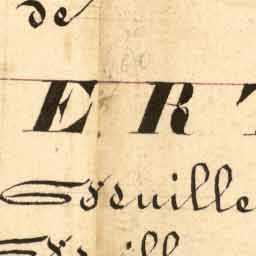 de
ERT
Feuille